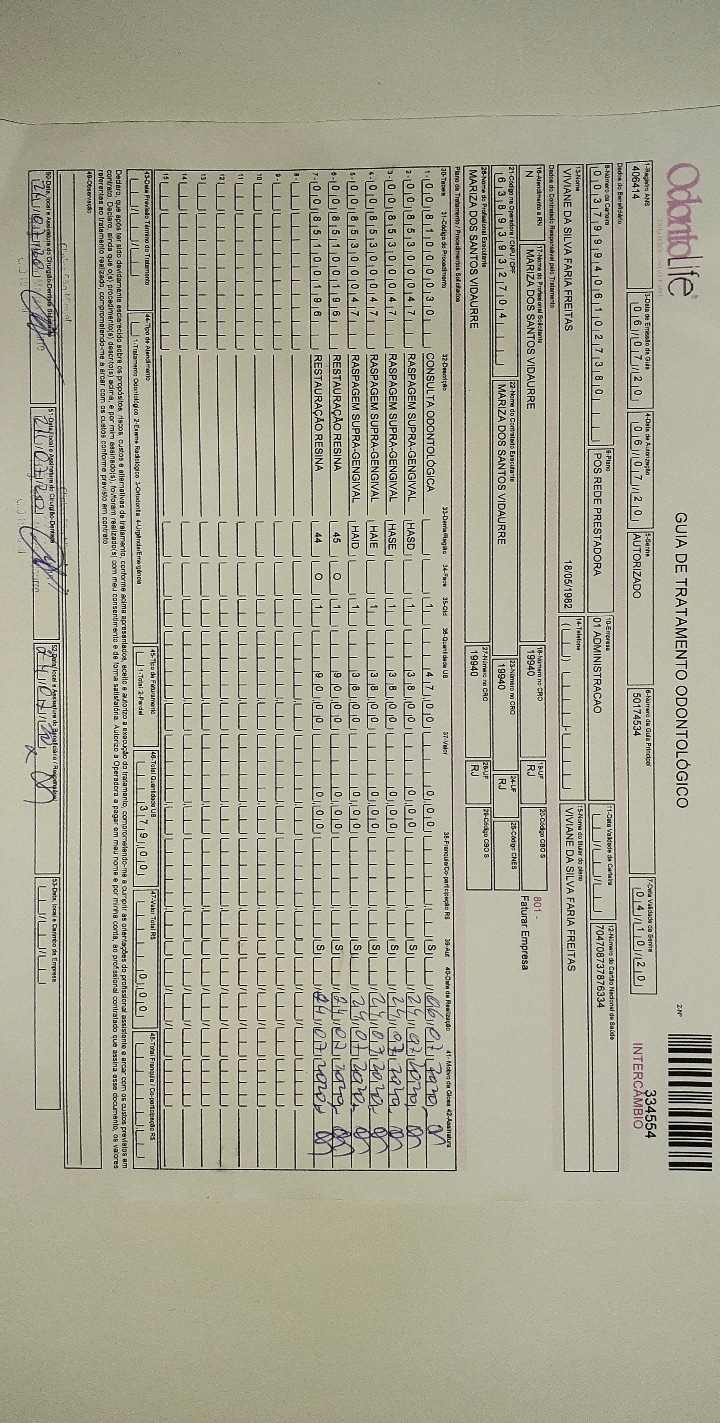 OdontoLife
GUIA DE TRATAMENTO ODONTOLÓGICO
2-Nº
334554
INTERCÂMBIO
1-Registro ANS 3-Data de Emissão da Guia 4-Data de Autorização 5-Senha 6-Número da Guia Principal 7-Data Validade da Senha
406414 06/07/20 06/07/20 AUTORIZADO 50174534 04/10/20
Dados do Beneficiário
8-Número da Carteira 9-Plano 10-Empresa 11-Data Validade da Carteira 12-Número do Cartão Nacional de Saúde
00379994061027380 POS REDE PRESTADORA 01 ADMINISTRACAO 704708737876334
13-Nome 14-Telefone 15-Nome do titular do plano
VIVIANE DA SILVA FARIA FREITAS 18/05/1982 VIVIANE DA SILVA FARIA FREITAS
Dados do Contratado Responsável pelo Tratamento
16-Atendimento a RN 17-Nome do Profissional Solicitante 18-Número no CRO 19-UF 20-Código CBO S
N MARIZA DOS SANTOS VIDAURRE 19940 RJ
801 -
Faturar Empresa
21-Código na Operadora / CNPJ / CPF 22-Nome do Contratado Executante 23-Número no CRO 24-UF 25-Código CNES
63893932704 MARIZA DOS SANTOS VIDAURRE 19940 RJ
26-Nome do Profissional Executante 27-Número no CRO 28-UF 29-Código CBO S
MARIZA DOS SANTOS VIDAURRE 19940 RJ
Plano de Tratamento / Procedimentos Solicitados
30-Tabela 31-Código do Procedimento 32-Descrição 33-Dente/Região 34-Face 35-Qtd 36-Quantidade US 37-Valor 38-Franquia/Co-participação R$ 39-Aut 40-Data de Realização 41-Motivo da Glosa 42-Assinatura
1- 00 81000030 CONSULTA ODONTOLÓGICA 1 47,00 0,00 S 06/07/2020
2- 00 85300047 RASPAGEM SUPRA-GENGIVAL HASD 1 38,00 0,00 S 24/07/2020
3- 00 85300047 RASPAGEM SUPRA-GENGIVAL HASE 1 38,00 0,00 S 24/07/2020
4- 00 85300047 RASPAGEM SUPRA-GENGIVAL HAIE 1 38,00 0,00 S 24/07/2020
5- 00 85300047 RASPAGEM SUPRA-GENGIVAL HAID 1 38,00 0,00 S 24/07/2020
6- 00 85100196 RESTAURAÇÃO RESINA 45 O 1 90,00 0,00 S 24/07/2020
7- 00 85100196 RESTAURAÇÃO RESINA 44 O 1 90,00 0,00 S 24/07/2020
8-
9-
10
11
12
13
14
15
43-Data Prevista Término do Tratamento 44-Tipo de Atendimento 45-Tipo de Faturamento 46-Total Quantidade US 47-Valor Total R$ 48-Total Franquia / Co-participação R$
1-Tratamento Odontológico 2-Exame Radiológico 3-Ortodontia 4-Urgência/Emergência 1-Total 2-Parcial 379,00 0,00
Declaro, que após ter sido devidamente esclarecido sobre os propósitos, riscos, custos e alternativas de tratamento, conforme acima apresentados, aceito e autorizo a execução do tratamento, comprometendo-me a cumprir as orientações do profissional assistente e arcar com os custos previstos em
contrato. Declaro, ainda que o(s) procedimento(s) descrito(s) acima, e por mim assinado(s), foi/foram realizado(s) com meu consentimento e de forma satisfatória. Autorizo a Operadora a pagar em meu nome e por minha conta, ao profissional contratado que assina esse documento, os valores
referentes ao tratamento realizado, comprometendo-me a arcar com os custos conforme previsto em contrato.
49-Observação
50-Data, local e Assinatura do Cirurgião-Dentista Solicitante 51-Data, local e Assinatura do Cirurgião-Dentista 52-Data, local e Assinatura do Beneficiário / Responsável 53-Data, local e Carimbo da Empresa
24/07/2020 24/07/20